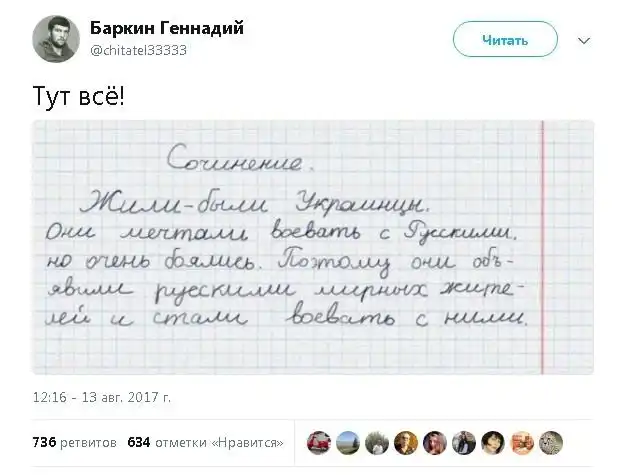 Баркин Геннадий
@chitatel33333
Читать
Тут всё!
Сочинение.
Жили-были Украинцы.
Они мечтали воевать с Русскими,
но очень боялись. Поэтому они объ-
явили русскими мирных жите-
лей и стали воевать с ними.
12:16 - 13 авг. 2017 г.
736 ретвитов 634 отметки «Нравится»